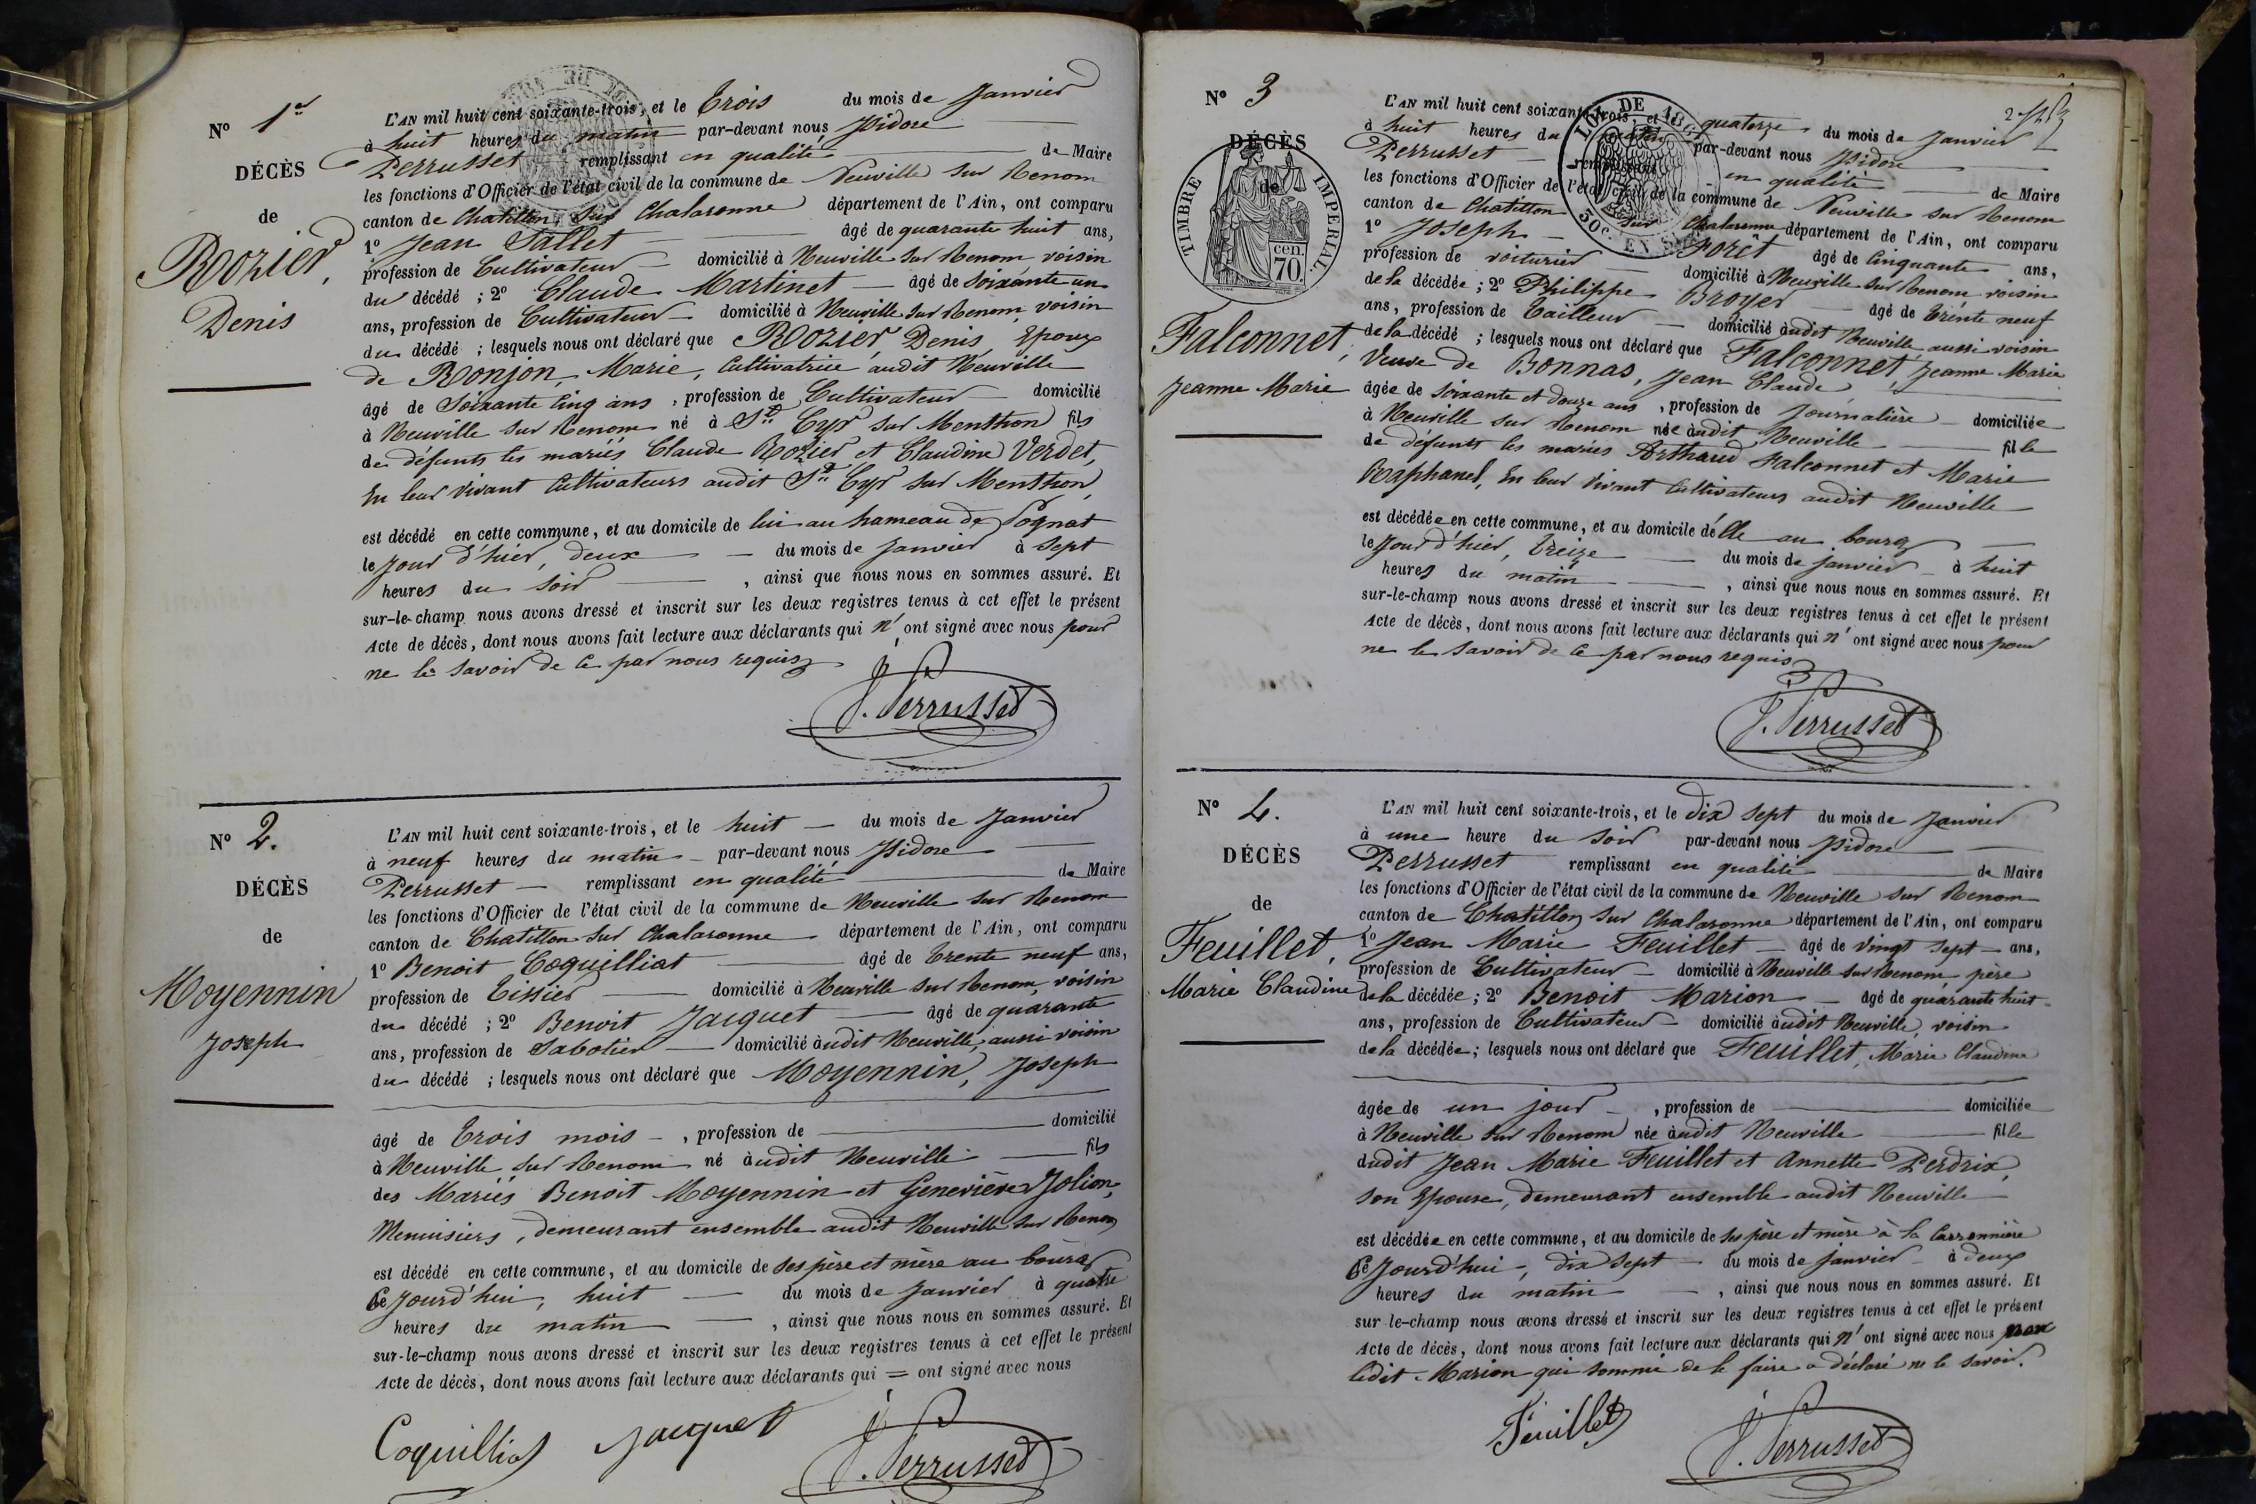 N° 1er
DÉCÈS
de
Rozier,
Denis
L'AN mil huit cent soixante-trois, et le Trois du mois de Janvier
à huit heures du matin par-devant nous Isidore
Perrusset remplissant en qualité de Maire
les fonctions d'Officier de l'état civil de la commune de Neuville sur Renom
canton de Chatillon sur Chalaronne département de l'Ain, ont comparu
1° Jean Sallet âgé de quarante huit ans,
profession de Cultivateur domicilié à Neuville sur Renom voisin
du décédé ; 2° Claude Martinet âgé de soixante un
ans, profession de Cultivateur domicilié à Neuville sur Renom, voisin
du décédé ; lesquels nous ont déclaré que Rozier, Denis, Epoux
de Ronjon, Marie, Cultivatrice audit Neuville
âgé de Soixante Cinq ans , profession de Cultivateur domicilié
à Neuville sur Renom né à St Cyr sur Menthon fils
de défunts les mariés Claude Rozier et Claudine Verdet,
En leur vivant Cultivateurs audit St Cyr sur Menthon,
est décédé en cette commune, et au domicile de lui au hameau de Pognat
le Jour d'hier, deux du mois de Janvier à sept
heures du soir , ainsi que nous nous en sommes assuré. Et
sur-le-champ nous avons dressé et inscrit sur les deux registres tenus à cet effet le présent
Acte de décès, dont nous avons fait lecture aux déclarants qui n' ont signé avec nous pour
ne le savoir de ce par nous requis
J. Perrusset
N° 2.
DÉCÈS
de
Moyennin
Joseph
L'AN mil huit cent soixante-trois, et le huit du mois de Janvier
à neuf heures du matin par-devant nous Isidore
Perrusset remplissant en qualité de Maire
les fonctions d'Officier de l'état civil de la commune de Neuville sur Renom
canton de Chatillon sur Chalaronne département de l'Ain, ont comparu
1° Benoit Coquilliat âgé de Trente neuf ans,
profession de Tissier domicilié à Neuville sur Renom, voisin
du décédé ; 2° Benoit Jacquet âgé de quarante
ans, profession de Sabotier domicilié audit Neuville, aussi voisin
du décédé ; lesquels nous ont déclaré que Moyennin, Joseph
âgé de Trois mois , profession de domicilié
à Neuville sur Renom né audit Neuville fils
des Mariés Benoit Moyennin et Geneviève Jolion,
Menuisiers, demeurant ensemble audit Neuville sur Renom
est décédé en cette commune, et au domicile de ses père et mère au bourg
Ce Jourd'hui, huit du mois de Janvier à quatre
heures du matin , ainsi que nous nous en sommes assuré. Et
sur-le-champ nous avons dressé et inscrit sur les deux registres tenus à cet effet le présent
Acte de décès, dont nous avons fait lecture aux déclarants qui = ont signé avec nous
Coquilliat Jacquet J. Perrusset
N° 3
DÉCÈS
de
TIMBRE IMPERIAL
70 cen.
Falconnet,
Jeanne Marie
L'AN mil huit cent soixante-trois, et le quatorze du mois de Janvier
à huit heures du matin par-devant nous Isidore
Perrusset remplissant en qualité de Maire
les fonctions d'Officier de l'état civil de la commune de Neuville sur Renom
canton de Chatillon sur Chalaronne département de l'Ain, ont comparu
1° Joseph Forêt âgé de Cinquante ans,
profession de voiturier domicilié à Neuville sur Renom voisin
de la décédée ; 2° Philippe Broyer âgé de Trente neuf
ans, profession de Tailleur domicilié audit Neuville, aussi voisin
de la décédé ; lesquels nous ont déclaré que Falconnet, Jeanne Marie
Veuve de Bonnas, Jean Claude
âgée de soixante et douze ans , profession de Journalière domiciliée
à Neuville sur Renom née audit Neuville fille
de défunts les mariés Arthaud Falconnet et Marie
Raphanel, En leur vivant Cultivateurs audit Neuville
est décédée en cette commune, et au domicile d'elle au bourg
le Jour d'hier, Treize du mois de janvier à huit
heures du matin , ainsi que nous nous en sommes assuré. Et
sur-le-champ nous avons dressé et inscrit sur les deux registres tenus à cet effet le présent
Acte de décès, dont nous avons fait lecture aux déclarants qui n' ont signé avec nous pour
ne le savoir de ce par nous requis
J. Perrusset
N° 4.
DÉCÈS
de
Feuillet,
Marie Claudine
L'AN mil huit cent soixante-trois, et le Dix sept du mois de Janvier
à une heure du soir par-devant nous Isidore
Perrusset remplissant en qualité de Maire
les fonctions d'Officier de l'état civil de la commune de Neuville sur Renom
canton de Chatillon sur Chalaronne département de l'Ain, ont comparu
1° Jean Marie Feuillet âgé de Vingt sept ans,
profession de Cultivateur domicilié à Neuville sur Renom père
de la décédée ; 2° Benoit Marion âgé de quarante huit
ans, profession de Cultivateur domicilié audit Neuville, voisin
de la décédée ; lesquels nous ont déclaré que Feuillet, Marie Claudine
âgée de un jour , profession de domiciliée
à Neuville sur Renom née audit Neuville fille
dudit Jean Marie Feuillet et Annette Perdrix,
son Epouse, demeurant ensemble audit Neuville
est décédée en cette commune, et au domicile de ses père et mère à la Carronnière
Ce Jourd'hui, dix sept du mois de janvier à deux
heures du matin , ainsi que nous nous en sommes assuré. Et
sur-le-champ nous avons dressé et inscrit sur les deux registres tenus à cet effet le présent
Acte de décès, dont nous avons fait lecture aux déclarants qui n' ont signé avec nous
ledit Marion qui sommé de le faire a déclaré ne le savoir.
Feuillet J. Perrusset